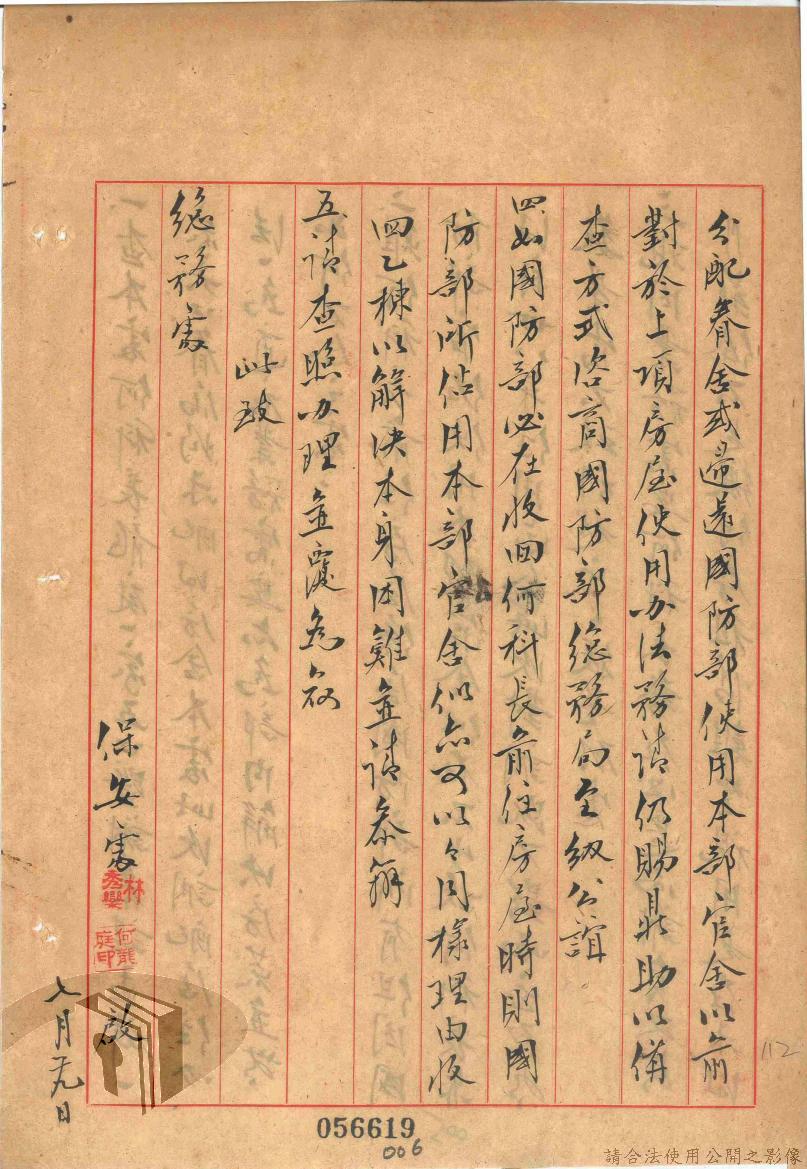 分配眷舍或遷還國防部使用本部官舍以前
對於上項房屋使用办法務請仍賜鼎助以併
查方式咨商國防部總務局至級公誼
四、如國防部必在收回何科長前住房屋時則國
防部所佔用本部官舍似亦可以同樣理由收
四乙棟以解决本身困難並請参辦
五、請查照办理並覆為荷
此致
總務處
保安處 啟
林秀欒
何龍庭印
七月 日
112
056619
006
請合法使用公開之影像